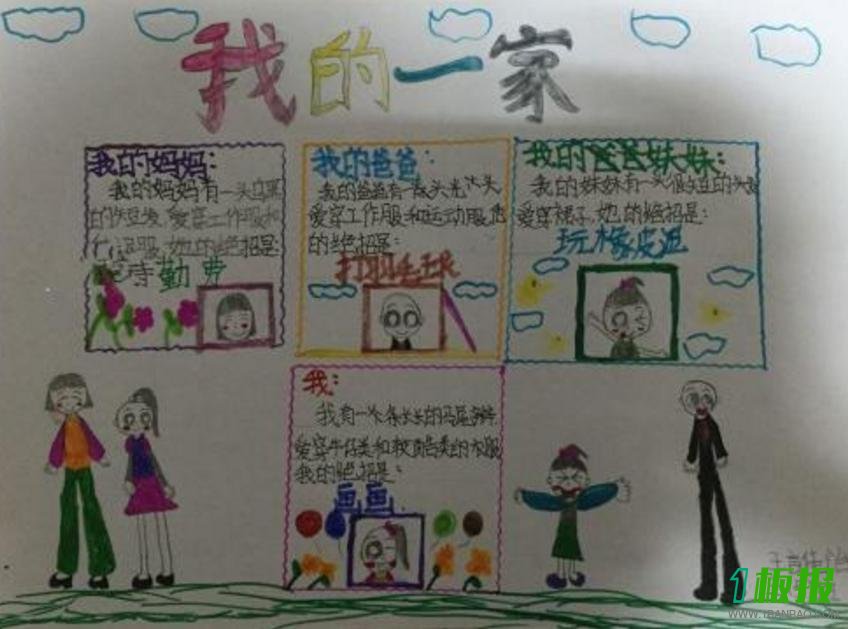 我的一家
我的妈妈:
我的妈妈有一头乌黑
的短发,爱穿工作服和
服,她的绝招是:
勤劳
我的爸爸:
我的爸爸有一头光头,
爱穿工作服和运动服,他
的绝招是:
打羽毛球
我的爸爸妹妹:
我的妹妹有一头很短的头发
爱穿裙子,她的绝招是:
玩橡皮泥
我:
我有一条长长的马尾辫
爱穿牛仔类和 类的衣服
我的绝招是:
画画
1板报
WWW.1BANBAO.COM